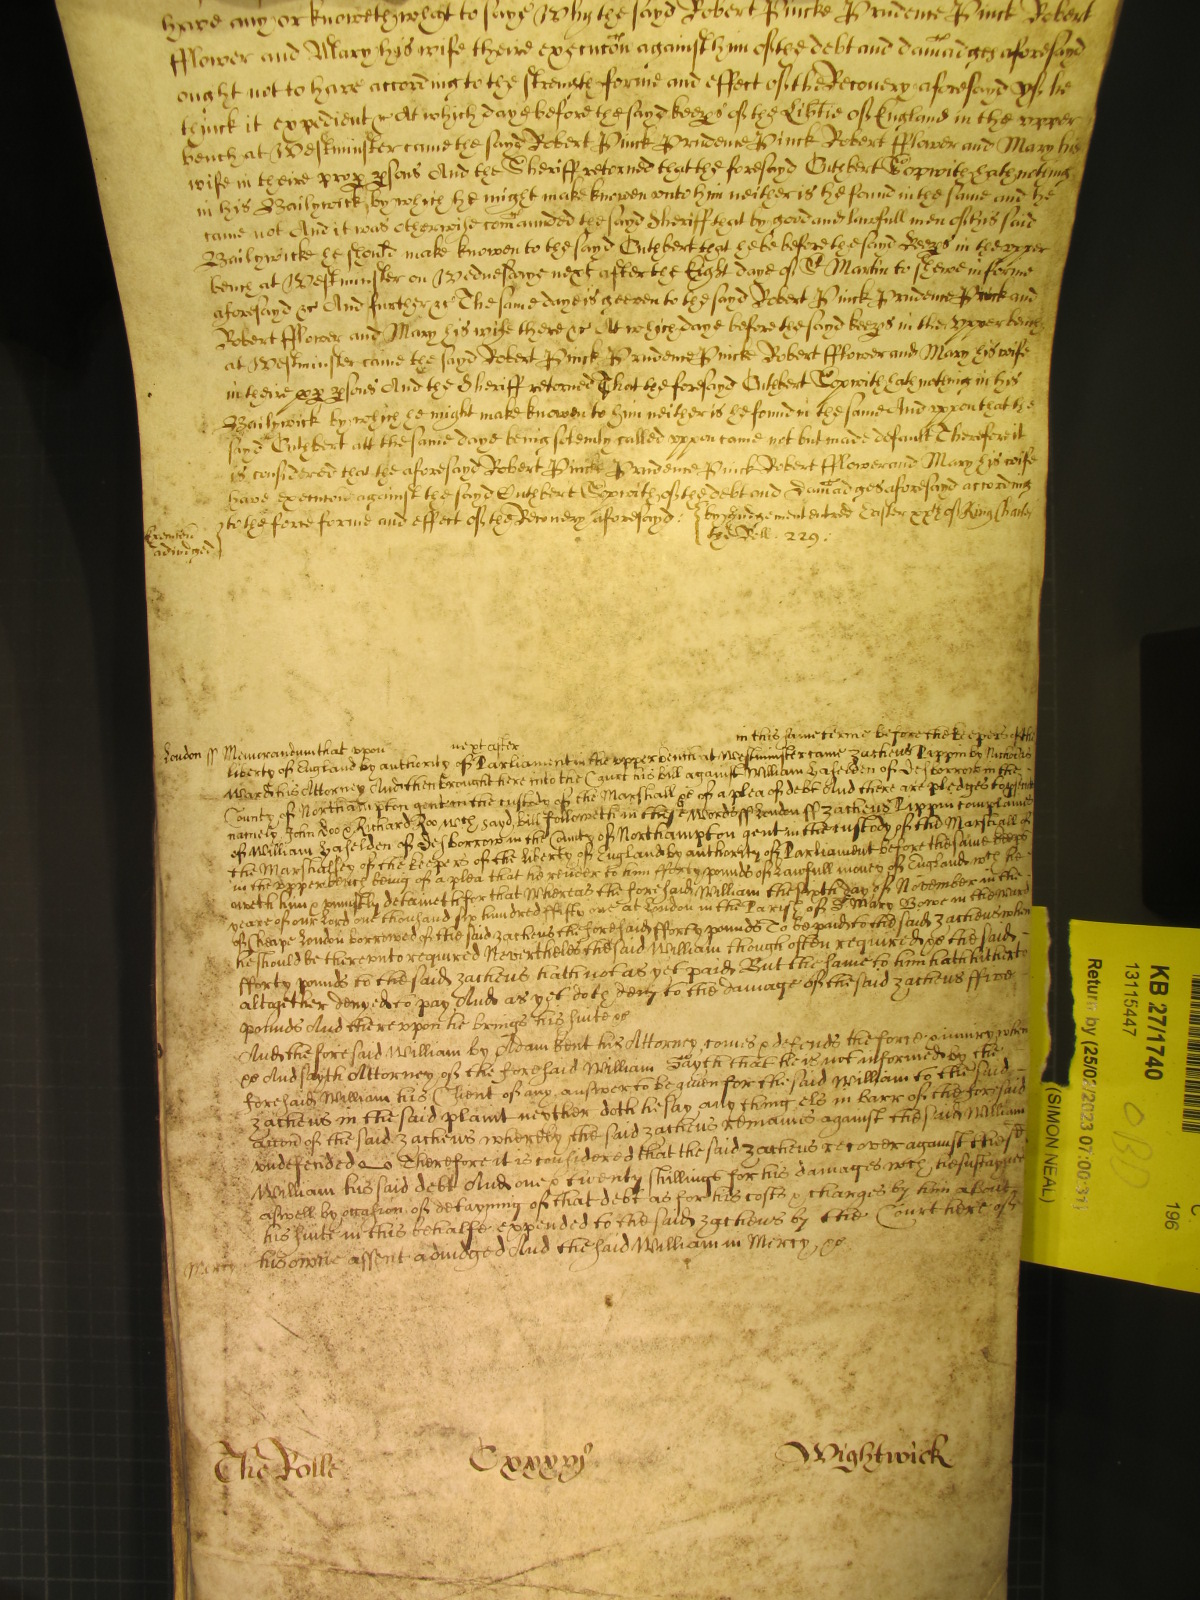 have any or knoweth what to saye Why the sayd Robert Pincke Prudence Pinck Robert
fflower and Mary his wife theire execucon against him of the debt and damadges aforesayd
ought not to have according to the strength forme and effect of the Recovery aforesayd yf he
thinck it expedient &c At which daye before the sayd keeps of the Libtie of England in the vpper
bench at Westminster came the sayd Robert Pinck Prudence Pinck Robert fflower and Mary his
wife in theire propp psons And the Sheriff retorned that the foresayd Cuthbert hath nothing
in his Bailywick by which he might make knowen vnto him neither is he found in the same and he
came not And it was otherwise comanded the sayd Sheriff that by good and lawfull men of his said
Bailywicke he should make knowen to the sayd Cuthbert that he be before the sayd keeps in the vpper
bench at Westminster on Wednesdaye next after the Eight daye of St Martin to shewe in forme
aforesayd &c And further &c The same daye is geeven to the sayd Robert Pinck Prudence Pinck and
Robert fflower and Mary his wife there &c At which daye before the sayd keeps in the vpper bench
at Westminster came the sayd Robert Pinck Prudence Pincke Robert fflower and Mary his wife
in theire pp psons And the Sheriff retorned That the foresayd Cuthbert hath nothing in his
Bailywick by which he might make knowen to him neither is he found in the same And vppon that the
sayd Cuthbert att the same daye being solemly called vppon came not but made default Therefore it
is considered that the aforesayd Robert Pincke Prudence Pinck Robert fflower and Mary his wife
have execucon against the sayd Cuthbert of the debt and Damadges aforesayd according
to the force forme and effect of the Recovery aforesayd: by Judgement entred Easter xxth of King Charles
the Roll. 229:
Execucon
adiudged
London ss Memorandum that vpon next after in this same terme before the keepers of the
liberty of England by authority of Parliament in the vpper bench at Westminster came Zacheus Lippin by Nicholas
Ward his Attorney And then brought here into the Court his bill against William Haselden of Desborrow in the
County of Northampton gent in the custody of the Marshall &c of a plea of debt And there are pledges to psecute
namely John Doo & Richard Roo wch sayd bill followeth in these Words ss London ss Zacheus Lippin complaines
of William Haselden of Desborrow in the County of Northampton gent in the custody of the Marshall of
the Marshalsey of the keepers of the liberty of England by authority of Parliament before the same keeps
in the vpper bench being of a plea that he render to him fforty pounds of lawfull money of England wch he
oweth him & vniustly deteineth for that Whereas the foresaid William the sixth day of November in the
yeare of our Lord one thousand six hundred ffifty one at London in the Parish of St Mary Bowe in the ward
of Cheape London borrowed of the said Zacheus the foresaid fforty pounds To be paid to the said Zacheus when
he should be therevnto required Nevertheles the said William though often required &c the said
fforty pounds to the said Zacheus hath not as yet paid But the same to him hath hitherto
altogether denyed to pay And as yet doth deny to the damage of the said Zacheus ffive
pounds And there vpon he brings his suite &c
And the foresaid William by Adam Kent his Attorney comes & defends the force & iniury when
&c And sayth Attorney of the foresaid William Sayth that he is not informed by the
foresaid William his Client of any answer to be given for the said William to the said
Zacheus in the said plaint neither doth he say any thing els in barr of the foresaid
accon of the said Zacheus whereby the said Zacheus remaines against the said William
vndefended Therefore it is considered that the said Zacheus recover against the sd
William his said debt And one & twenty shillings for his damages wch he sustayned
aswell by occasion of detayning of that debt as for his costs & charges by him about
his suite in this behalfe expended to the said Zacheus by the Court here of
his owne assent adiudged And the said William in Mercy &c
Mercy
The Rolle Cxxxxj Wightwick
KB 27/1740
13115447
Return by (25/02/2023 07:00:31)
(SIMON NEAL)
196
OBD